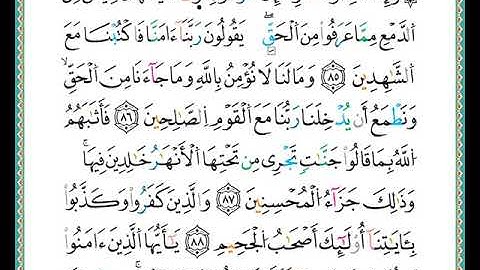 الدَّمْعِ مِمَّا عَرَفُوا مِنَ الْحَقِّ يَقُولُونَ رَبَّنَا ءَامَنَّا فَاكْتُبْنَا مَعَ
الشَّٰهِدِينَ ٨٥ وَمَا لَنَا لَا نُؤْمِنُ بِاللَّهِ وَمَا جَآءَنَا مِنَ الْحَقِّ
وَنَطْمَعُ أَن يُدْخِلَنَا رَبُّنَا مَعَ الْقَوْمِ الصَّٰلِحِينَ ٨٦ فَأَثَٰبَهُمُ
اللَّهُ بِمَا قَالُوا جَنَّٰتٍ تَجْرِى مِن تَحْتِهَا الْأَنْهَٰرُ خَٰلِدِينَ فِيهَا
وَذَٰلِكَ جَزَآءُ الْمُحْسِنِينَ ٨٧ وَالَّذِينَ كَفَرُوا وَكَذَّبُوا
بِـَٔايَٰتِنَآ أُوْلَٰٓئِكَ أَصْحَٰبُ الْجَحِيمِ ٨٨ يَٰٓأَيُّهَا الَّذِينَ ءَامَنُوا